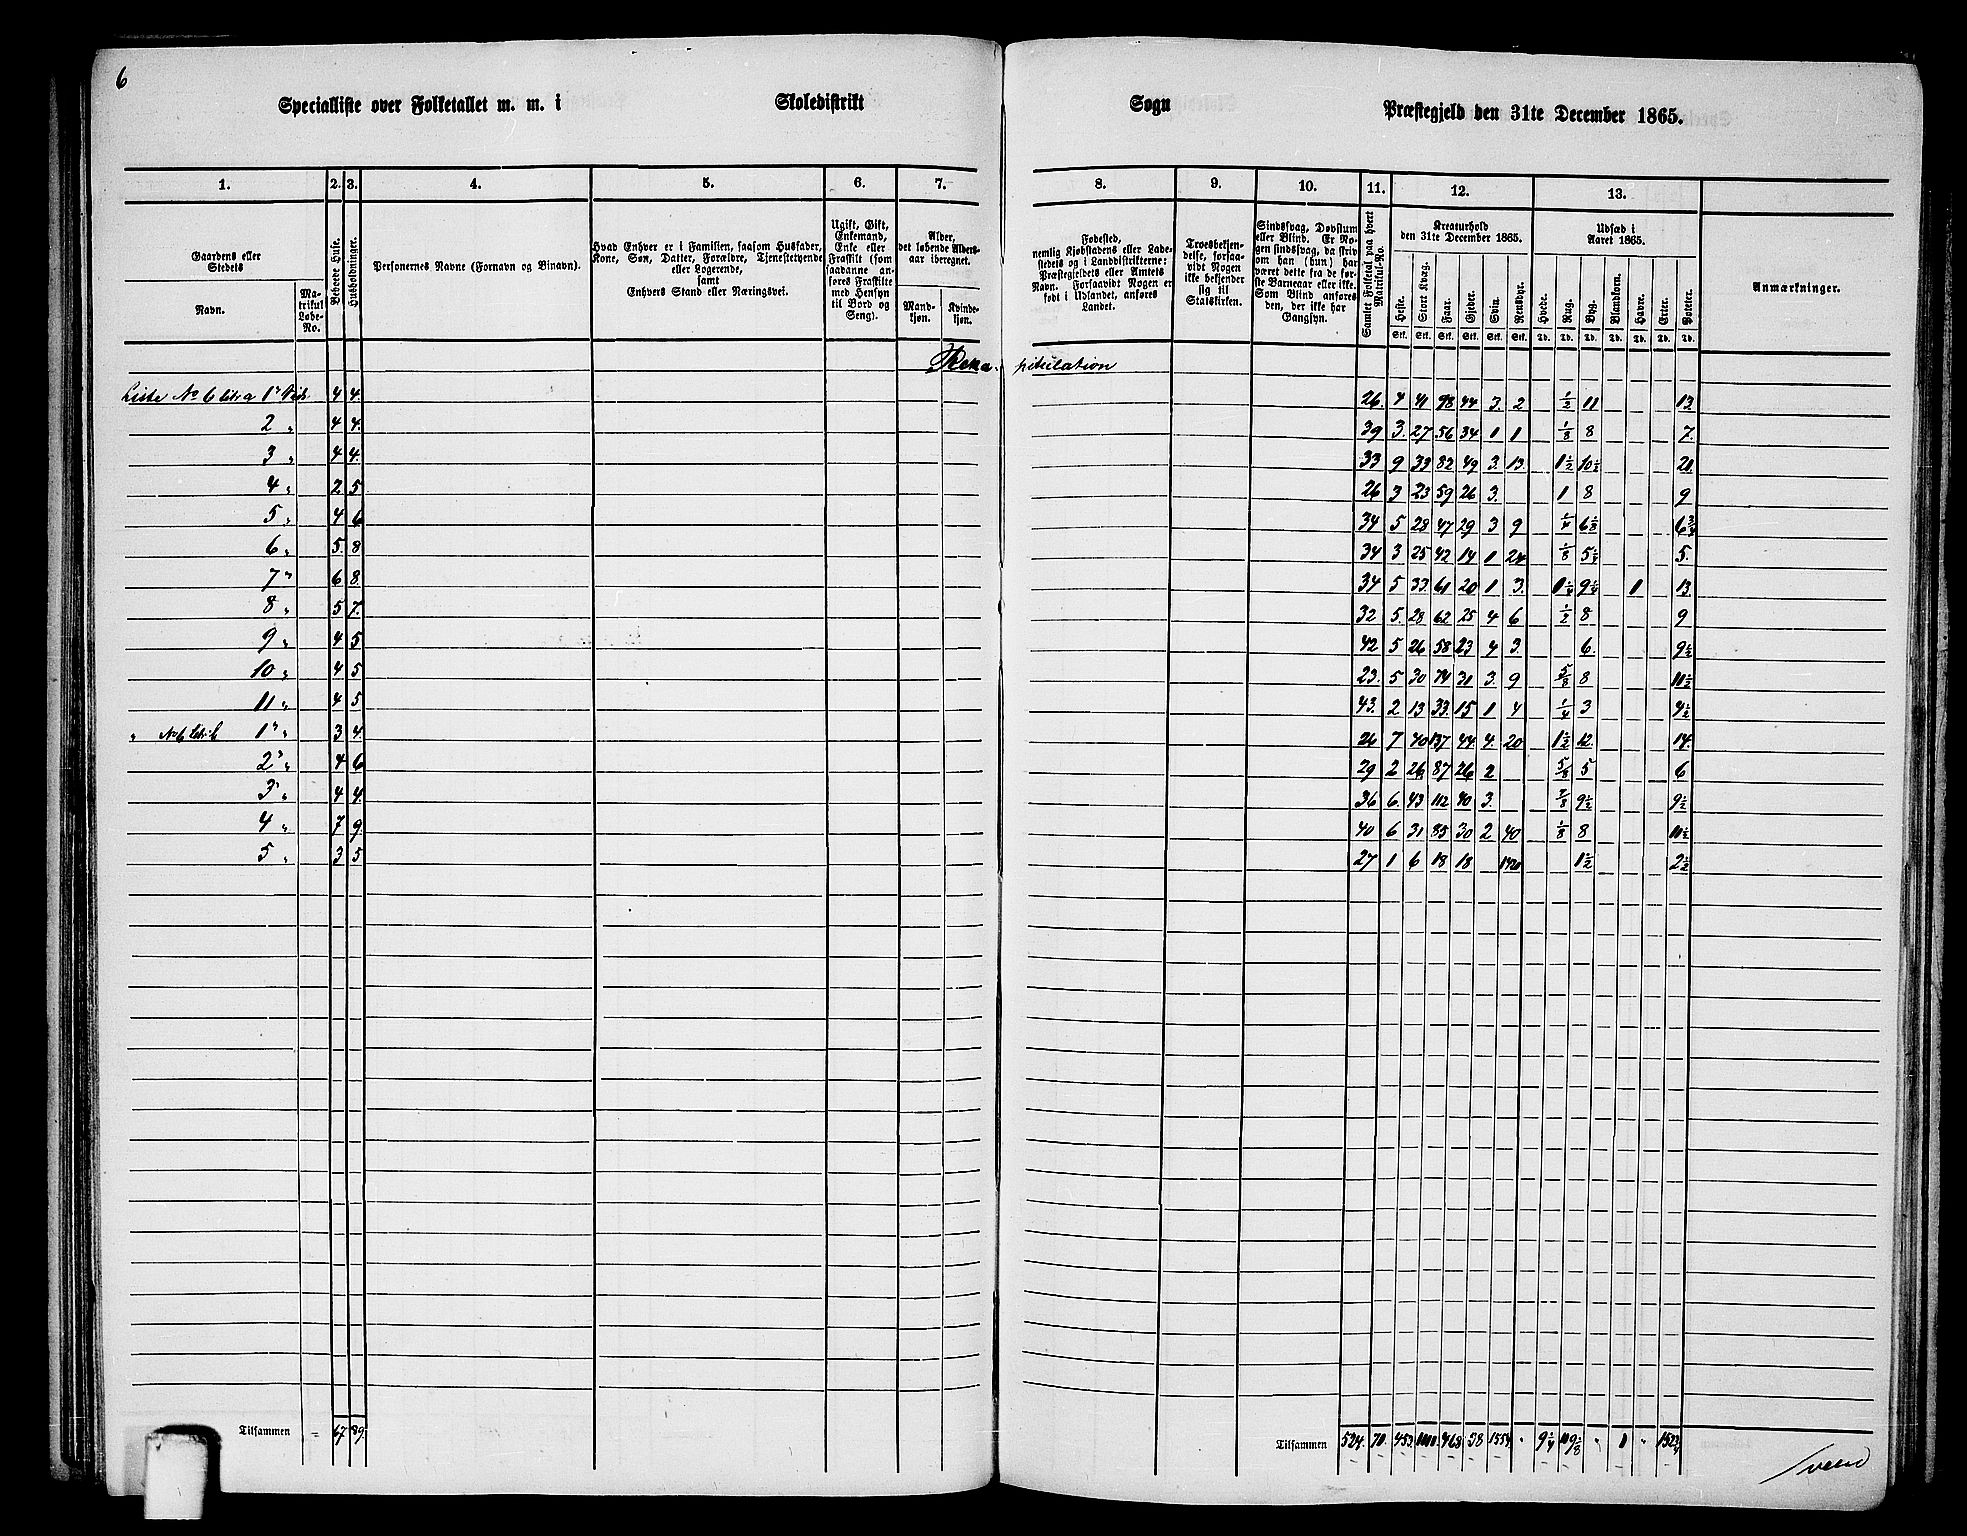 6
Specialliste over Folketallet m. m. i Skoledistrikt Sogn Præstegjeld den 31te December 1865.
1. 2. 3. 4. 5. 6. 7. 8. 9. 10. 11. 12. 13.
Gaardens eller Stedets
Navn.
Matrikul Løbe-No.
Beboede Huse.
Husholdninger.
Personernes Navne (Fornavn og Binavn).
Hvad Enhver er i Familien, saasom Husfader,
Kone, Søn, Datter, Forældre, Tjenestetyende
eller Logerende,
samt
Enhvers Stand eller Næringsvei.
Ugift, Gift,
Enkemand,
Enke eller
Fraskilt (som
saadanne an-
føres Fraskilte
med Hensyn
til Bord og
Seng).
Alder,
det løbende Alders-
aar iberegnet.
Mand-
kjøn.
Kvinde-
kjøn.
Fødested,
nemlig Kjøbstadens eller Lade-
stedets og i Landdistrikterne:
Præstegjeldets eller Amtets
Navn. Forsaavidt Nogen er
født i Udlandet, anføres
Landet.
Troesbekjen-
delse, forsaa-
vidt Nogen
ikke bekjender
sig til
Statskirken.
Sindssvag, Døvstum
eller Blind. Er No-
gen sindssvag, da skriv
om han (hun) har
været dette fra de før-
ste Barneaar eller ikke.
Som Blind anføres
den, der ikke har
Gangsyn.
Samlet Folketal paa hvert Matrikul-No.
Kreaturhold
den 31te December 1865.
Heste. Stort Kvæg. Faar. Gjeder. Svin. Rensdyr.
Stk. Stk. Stk. Stk. Stk. Stk.
Udsæd i
Aaret 1865.
Hvede. Rug. Byg. Blandkorn. Havre. Erter. Poteter.
Td. Td. Td. Td. Td. Td. Td.
Anmærkninger.
Rekapitulation
Liste No 6 litra a 1" Side 4 4. 26. 4 41 98 44 3. 2 1/2 11 13.
2 " 4 4. 39 3. 27 56 34 1 1 1/8 8 7.
3 " 4 4. 33 9 33 82 49 3. 13 1 1/2 10 1/2 21
4 " 2 5 26 3 23 59 26 3. 1 8 9
5 " 4 6 34 5 28 47 29 3 9 1/4 6 1/8 6 3/4
6 " 5. 8 34 3 25 42 14 1 24 1/8 5 1/2 5.
7 " 6 8. 34 5 33. 61 20 1 3. 1 1/4 9 1/4 1 13
8 " 5 7. 32 5. 28 62 25 4 6 1/2 8 9
9 " 4 5 42 5 26 58 23 4 3. 6. 9 1/2
10 " 4 5 23. 5 30 74 31 3. 9 5/8 8 11 1/2
11 " 4 5 43. 2 13 33. 15 1 4 1/4 3 4 1/2
" No 6 litr b 1" " 3 4. 26 7 40 137 44 4. 20 1 1/2 12. 14.
2" " 4 6 29 2 26 87 26 2 5/8 5 6
3" " 4 4. 36 6. 43 112 40 3. 7/8 9 1/2 9 1/2
4 " 7 9. 40 6 31 85 30 2 40 1/8 8 11 1/2
5 " 3 5 27 1 6 18 18 1 1/2 2 1/2
Tilsammen = 67. 89.
Tilsammen 524. 70. 453. 468 38 1554. " 9 1/4 " 1 "